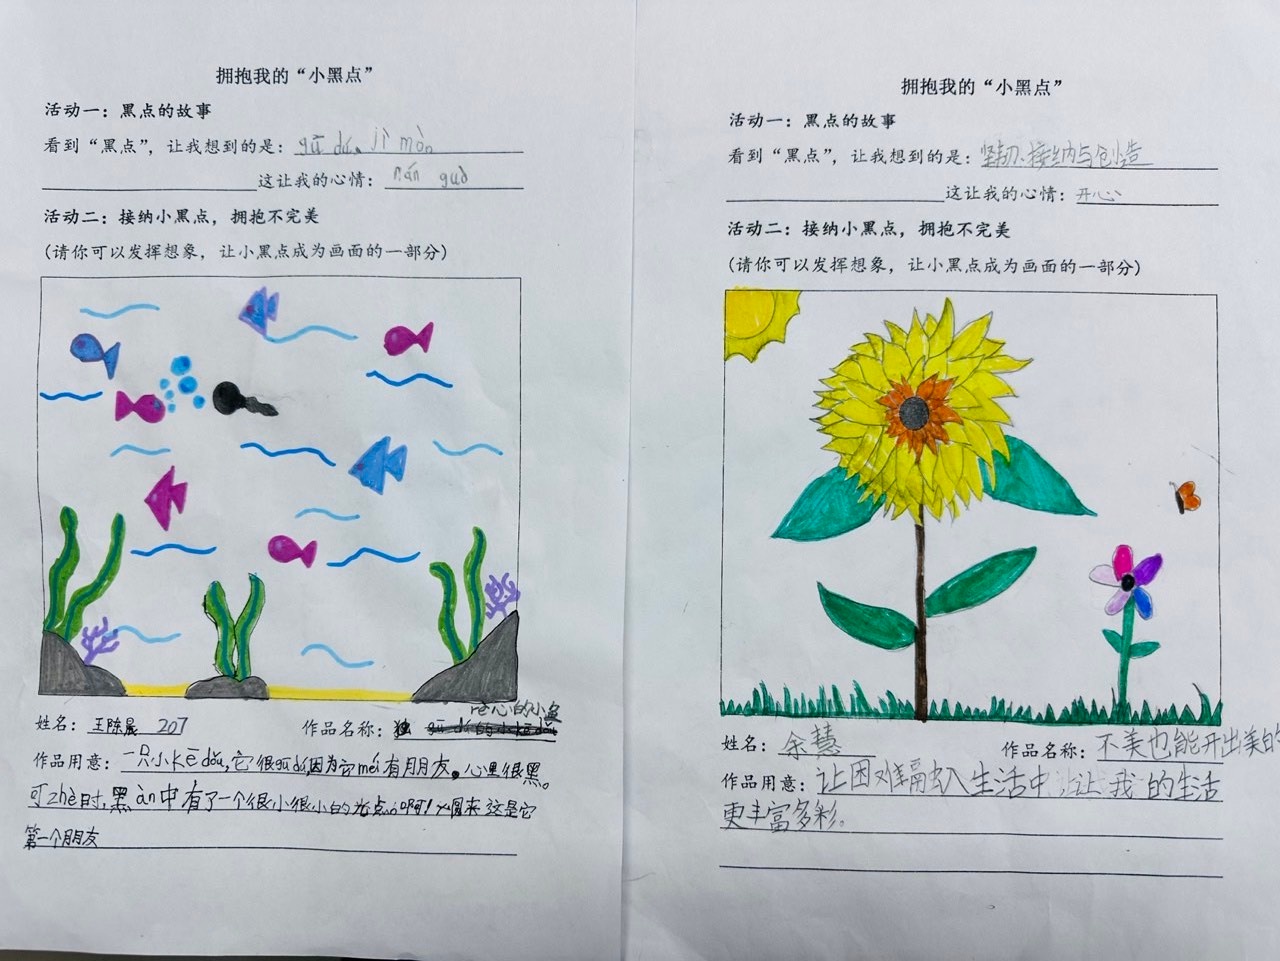 拥抱我的“小黑点”
活动一：黑点的故事
看到“黑点”，让我想到的是：gū dú、jì mò
这让我的心情：nán guò
活动二：接纳小黑点，拥抱不完美
(请你可以发挥想象，让小黑点成为画面的一部分)
姓名：王陈晨 207
作品名称：的小鱼
作品用意：一只小kē dǒu，它很gū dú，因为它méi有朋友。心里很黑。
可zhè时，黑àn中有了一个很小很小的光点。啊！原来这是它
第一个朋友
拥抱我的“小黑点”
活动一：黑点的故事
看到“黑点”，让我想到的是：坚韧、接纳与创造
这让我的心情：开心
活动二：接纳小黑点，拥抱不完美
(请你可以发挥想象，让小黑点成为画面的一部分)
姓名：余慧
作品名称：不美也能开出美的
作品用意：让困难融入生活中 让我的生活
更丰富多彩。